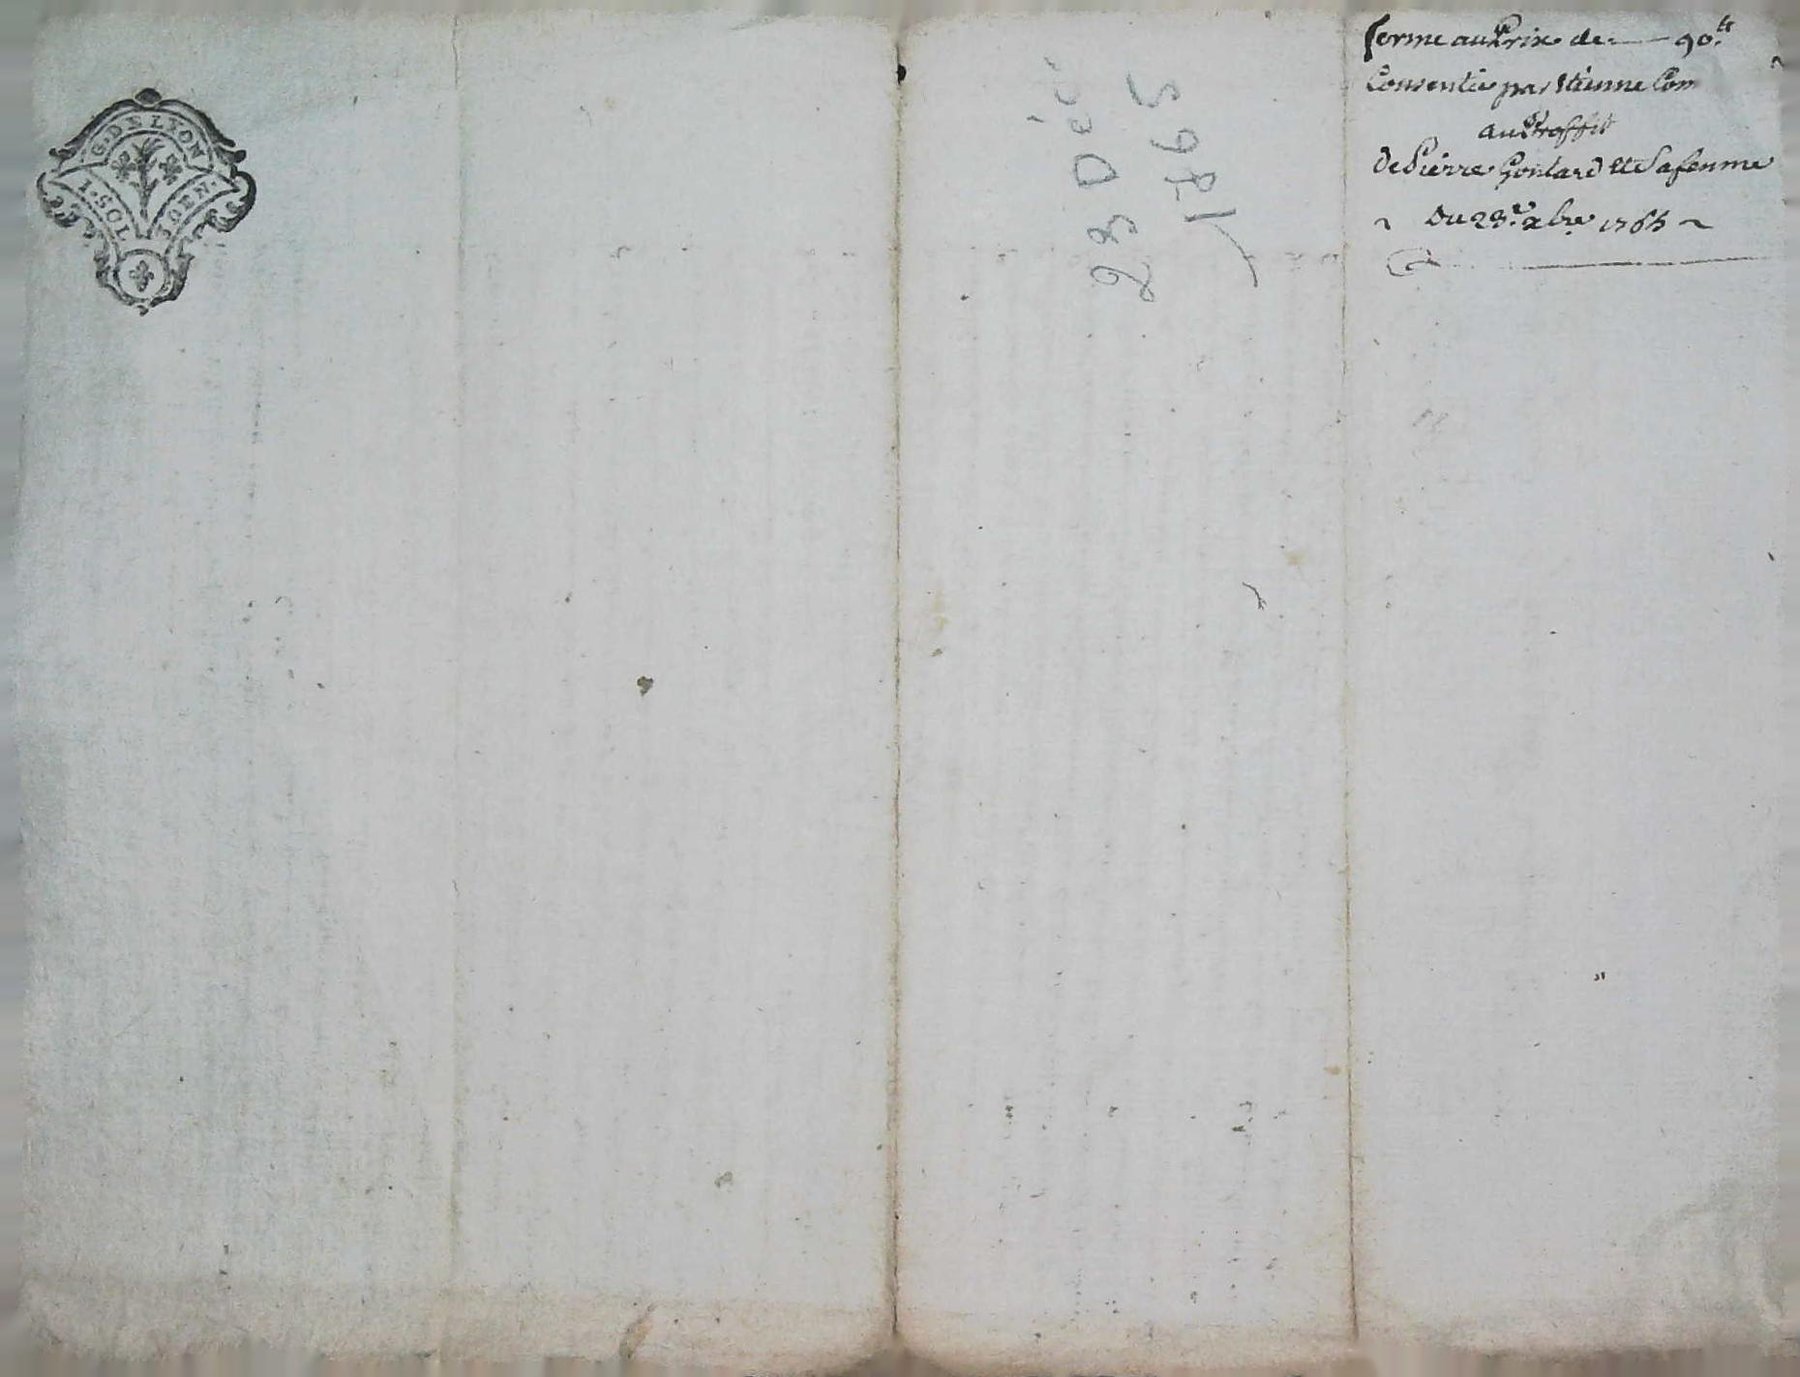 G. DE LYON
1. SOL
8. DEN.
23 Déc
1765
ferme au Prix de — 90.tt
Consentie par Etienne Com
au Proffit
De Pierre Goutard Et Sa femme
~ Du 23.e xbre 1765 ~